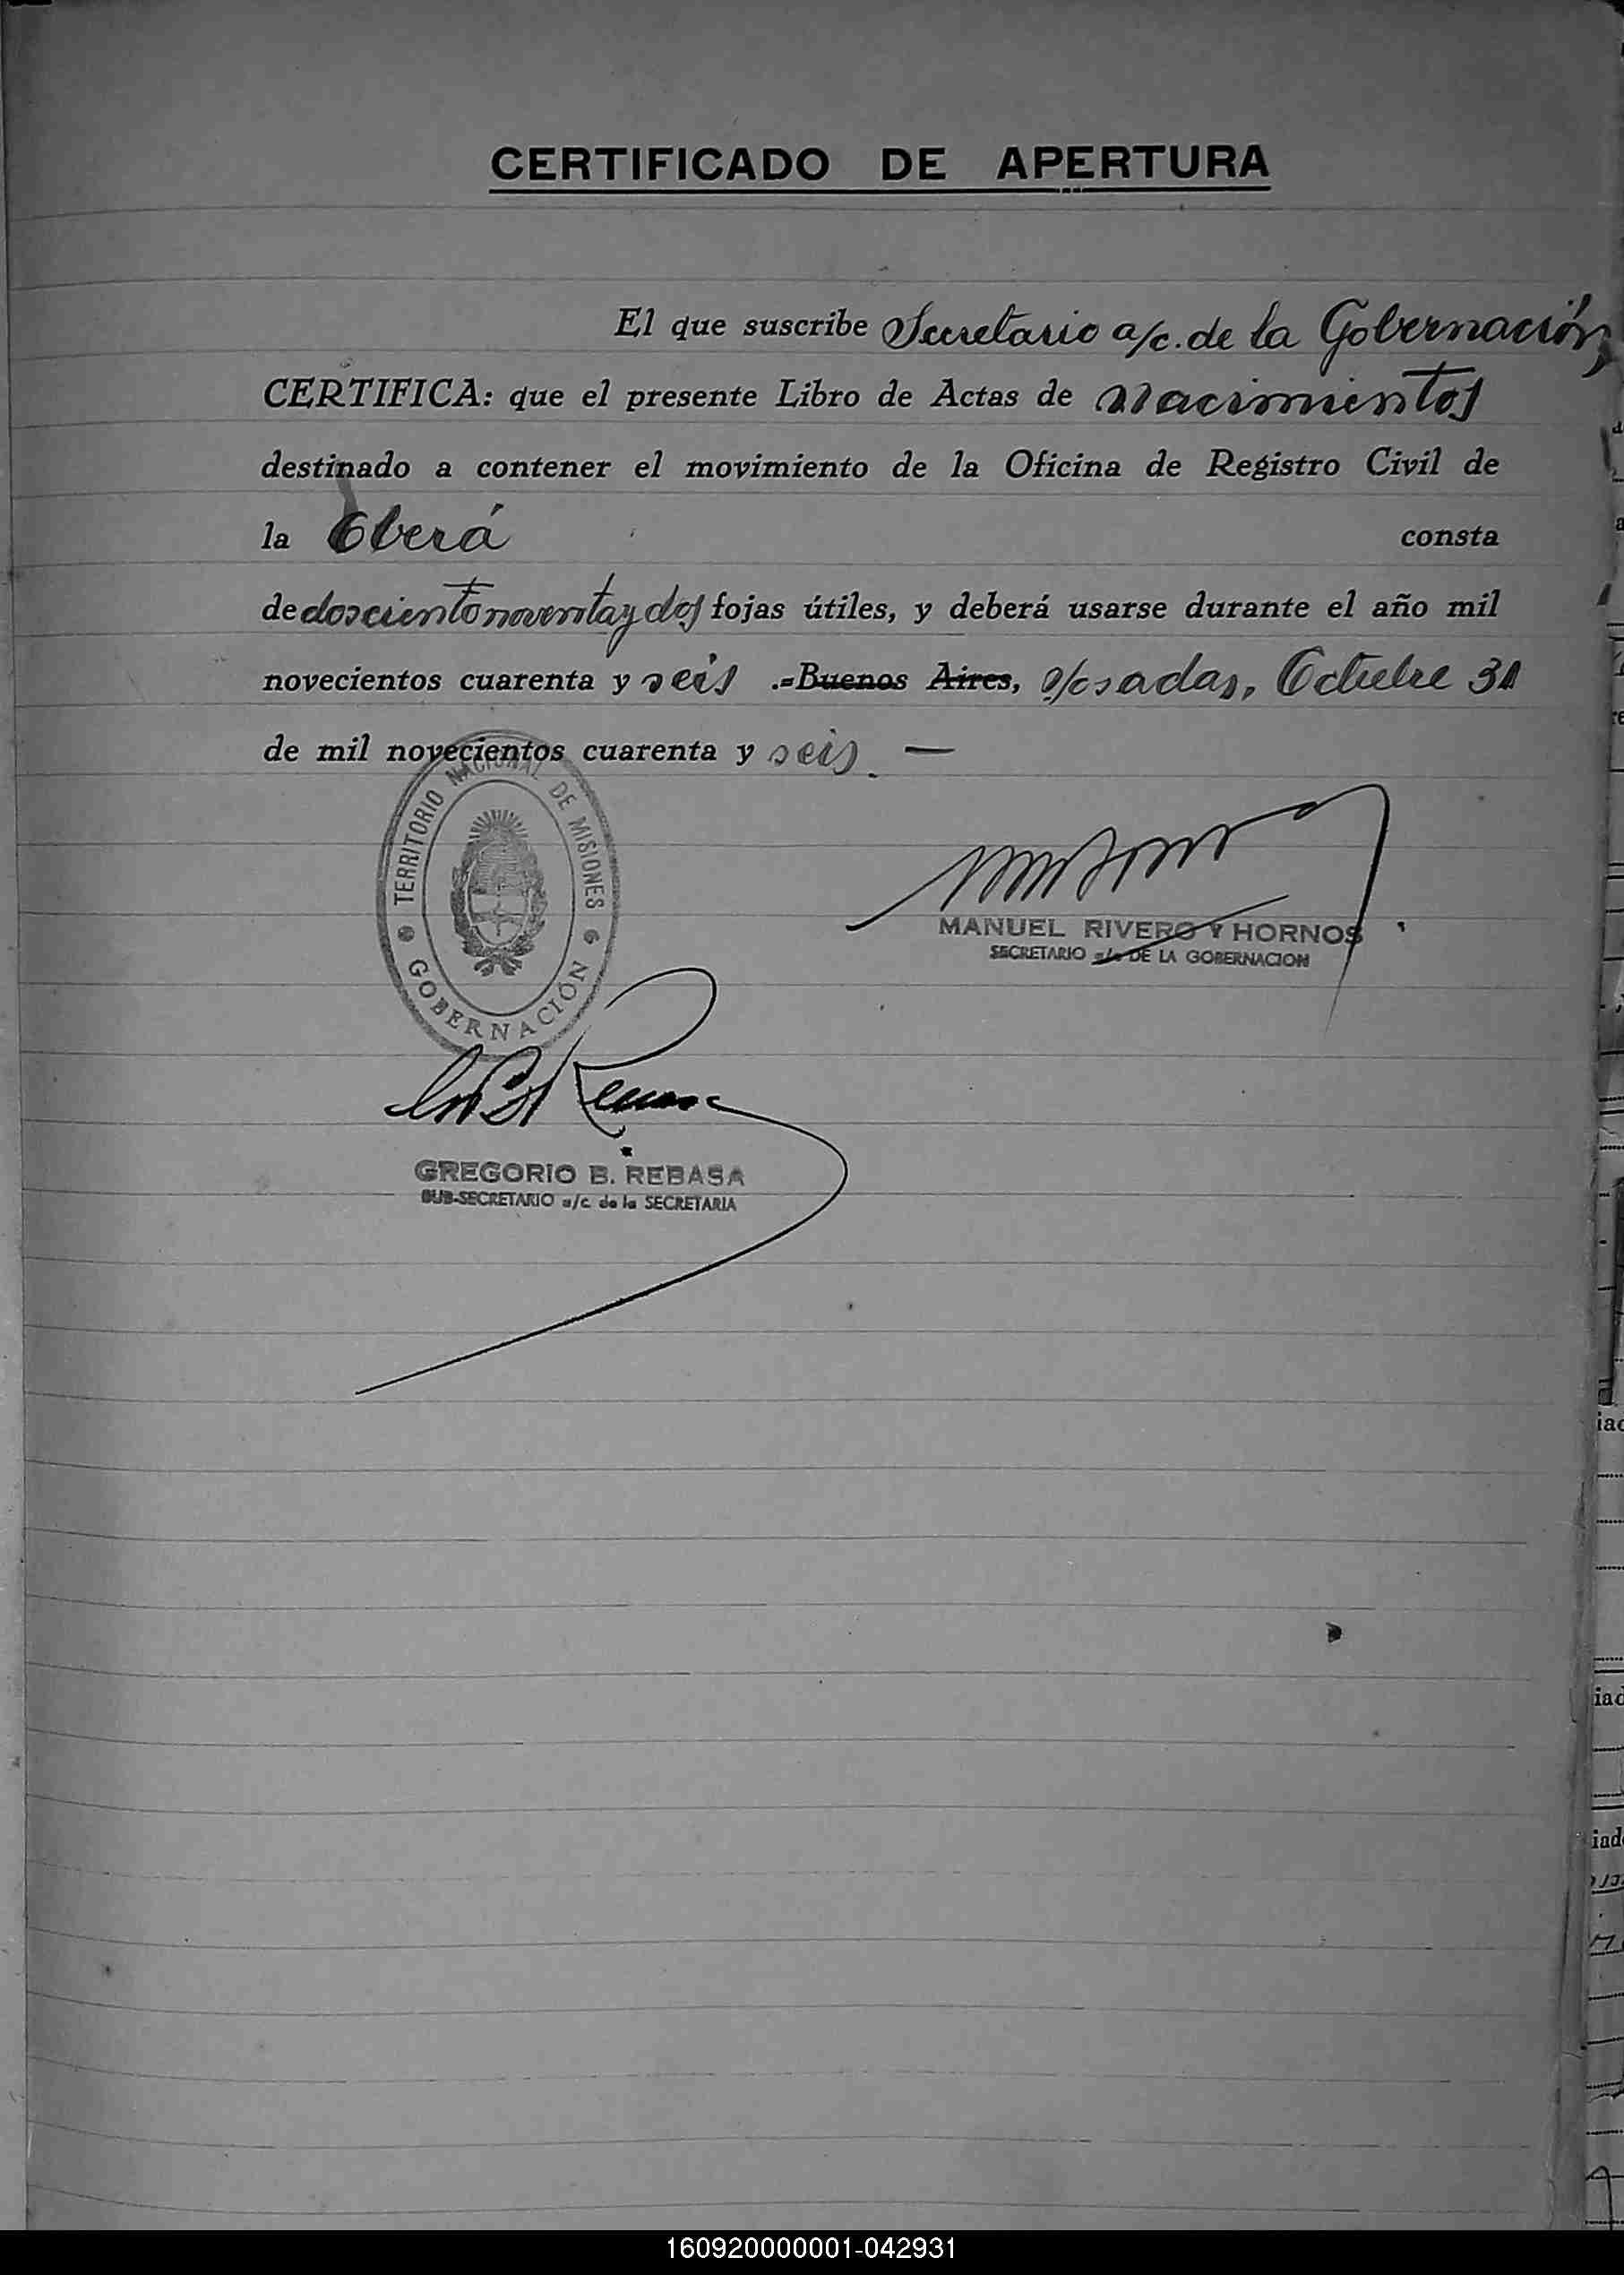 CERTIFICADO DE APERTURA
El que suscribe Secretario a/c. de la Gobernación,
CERTIFICA: que el presente Libro de Actas de Nacimientos
destinado a contener el movimiento de la Oficina de Registro Civil de
la Oberá consta
de doscientonoventa y dos fojas útiles, y deberá usarse durante el año mil
novecientos cuarenta y seis .=Buenos Aires, Posadas, Octubre 31
de mil novecientos cuarenta y seis. —
TERRITORIO NACIONAL DE MISIONES
GOBERNACIÓN
MANUEL RIVERO Y HORNOS
SECRETARIO a/c DE LA GOBERNACION
GREGORIO B. REBASA
SUB-SECRETARIO a/c de la SECRETARIA
160920000001-042931